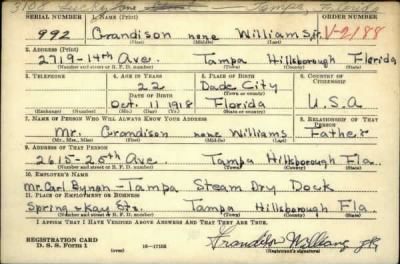 3108 Tampa, Florida
SERIAL NUMBER 1. NAME (Print) ORDER NUMBER
992 Grandison none Williams, jr. V-2188
(First) (Middle) (Last)
2. ADDRESS (Print)
2719-14th Ave. Tampa Hillsborough Florida
(Number and street or R. F. D. number) (Town) (County) (State)
3. TELEPHONE 4. AGE IN YEARS 5. PLACE OF BIRTH 6. COUNTRY OF CITIZENSHIP
22 Dade City
DATE OF BIRTH (Town or county)
Oct. 11 1918 Florida U.S.A
(Exchange) (Number) (Mo.) (Day) (Yr.) (State or country)
7. NAME OF PERSON WHO WILL ALWAYS KNOW YOUR ADDRESS 8. RELATIONSHIP OF THAT PERSON
Mr. Grandison none Williams Father
(Mr., Mrs., Miss) (First) (Middle) (Last)
9. ADDRESS OF THAT PERSON
2615-25th Ave. Tampa Hillsborough Fla.
(Number and street or R. F. D. number) (Town) (County) (State)
10. EMPLOYER'S NAME
Mr. Carl Bynon - Tampa Steam Dry Dock
11. PLACE OF EMPLOYMENT OR BUSINESS
Spring & Kay Sts. Tampa Hillsborough Fla.
(Number and street or R. F. D. number) (Town) (County) (State)
I AFFIRM THAT I HAVE VERIFIED ABOVE ANSWERS AND THAT THEY ARE TRUE.
REGISTRATION CARD
D. S. S. Form 1 (over) 16-17105 Grandison Williams jr.
(Registrant's signature)